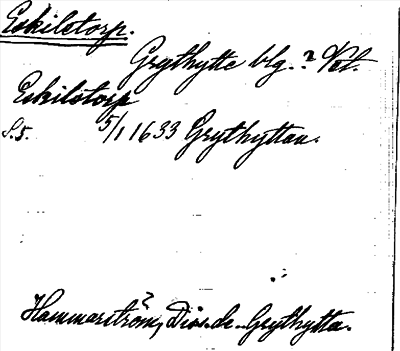 Eskiletorp.
Grythytte blg. ? Vet.
Eskilstorp
S.5. 5/1 1633 Grythyttan.
Hammarström, Div. de Grythytta.